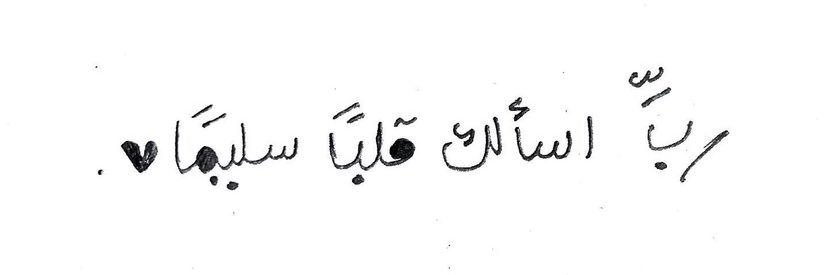 ربِّ اسألك قلبًا سليمًا ♥.